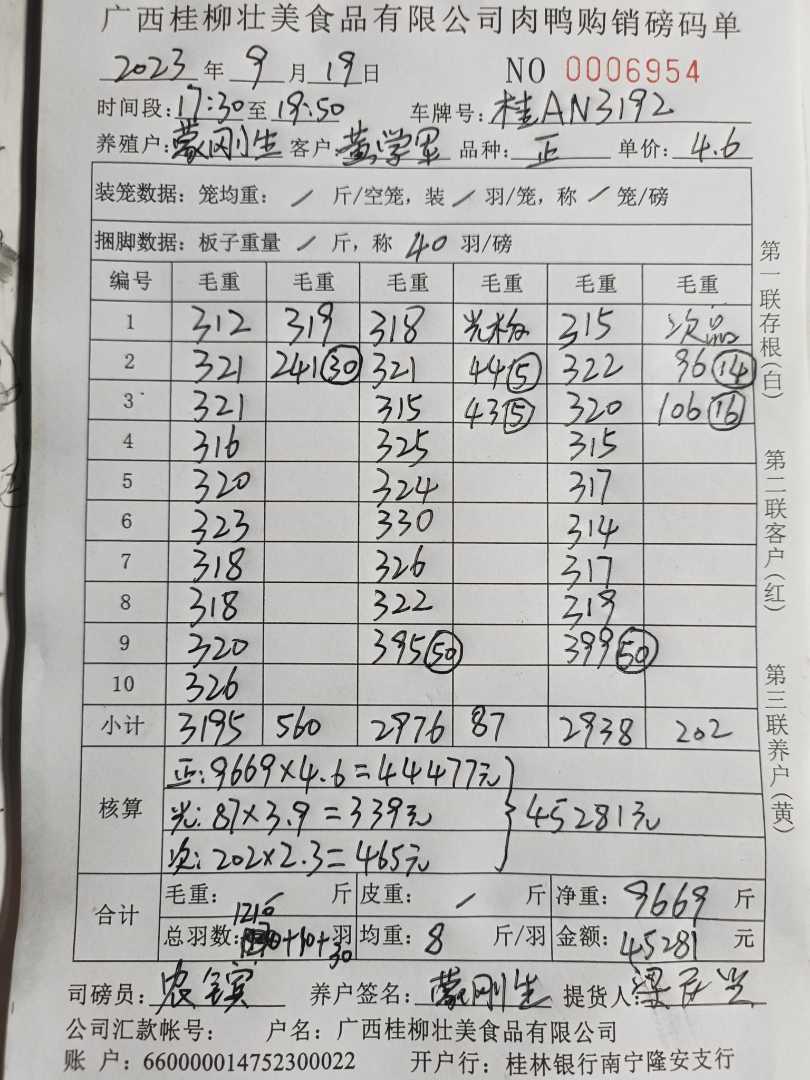 广西桂柳壮美食品有限公司肉鸭购销磅码单
2023年9月19日 NO 0006954
时间段:17:30至19:50 车牌号:桂AN3192
养殖户:蒙刚生 客户:黄学军 品种:正 单价:4.6
装笼数据:笼均重:/斤/空笼,装/羽/笼,称/笼/磅
捆脚数据:板子重量/斤,称40羽/磅
编号 毛重 毛重 毛重 毛重 毛重 毛重
1 312 319 318 光板 315 次品
2 321 241(30) 321 44(5) 322 96(14)
3 321 315 43(5) 320 106(16)
4 316 325 315
5 320 324 317
6 323 330 314
7 318 326 317
8 318 322 319
9 320 395(50) 399(50)
10 326
小计 3195 560 2976 87 2938 202
核算
正:9669×4.6=44477元
光:87×3.9=339元
次:202×2.3=465元
}45281元
合计
毛重:/斤 皮重:/斤 净重:9669斤
总羽数:1210+10+30羽 均重:8斤/羽 金额:45281元
司磅员:农 宾 养户签名:蒙刚生 提货人:梁
公司汇款帐号: 户名:广西桂柳壮美食品有限公司
账 户:660000014752300022 开户行:桂林银行南宁隆安支行
第一联存根(白)
第二联客户(红)
第三联养户(黄)